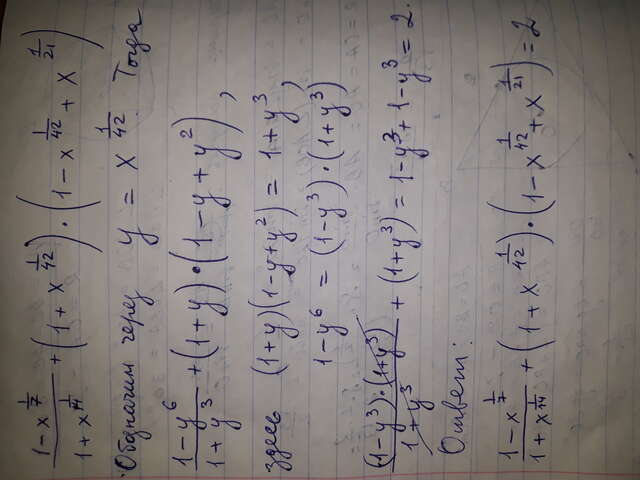 (1-x^(1/7))/(1+x^(1/14)) + (1+x^(1/42))·(1-x^(1/42)+x^(1/21))
Обозначим через y = x^(1/42). Тогда
(1-y^6)/(1+y^3) + (1+y)·(1-y+y^2),
здесь (1+y)(1-y+y^2) = 1+y^3,
1-y^6 = (1-y^3)·(1+y^3)
((1-y^3)·(1+y^3))/(1+y^3) + (1+y^3) = 1-y^3+1-y^3 = 2.
Ответ:
(1-x^(1/7))/(1+x^(1/14)) + (1+x^(1/42))·(1-x^(1/42)+x^(1/21)) = 2